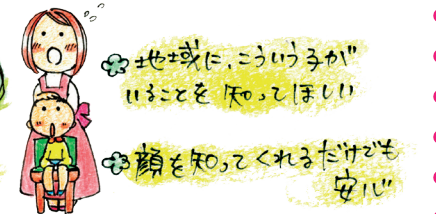 地域に、こういう子が
いることを 知ってほしい
顔を知ってくれるだけでも
安心